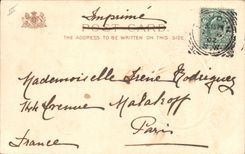 Imprimé
POST CARD
THE ADDRESS TO BE WRITTEN ON THIS SIDE.
Mademoiselle Irène Rodrigues
Avenue Malakoff
Paris
France